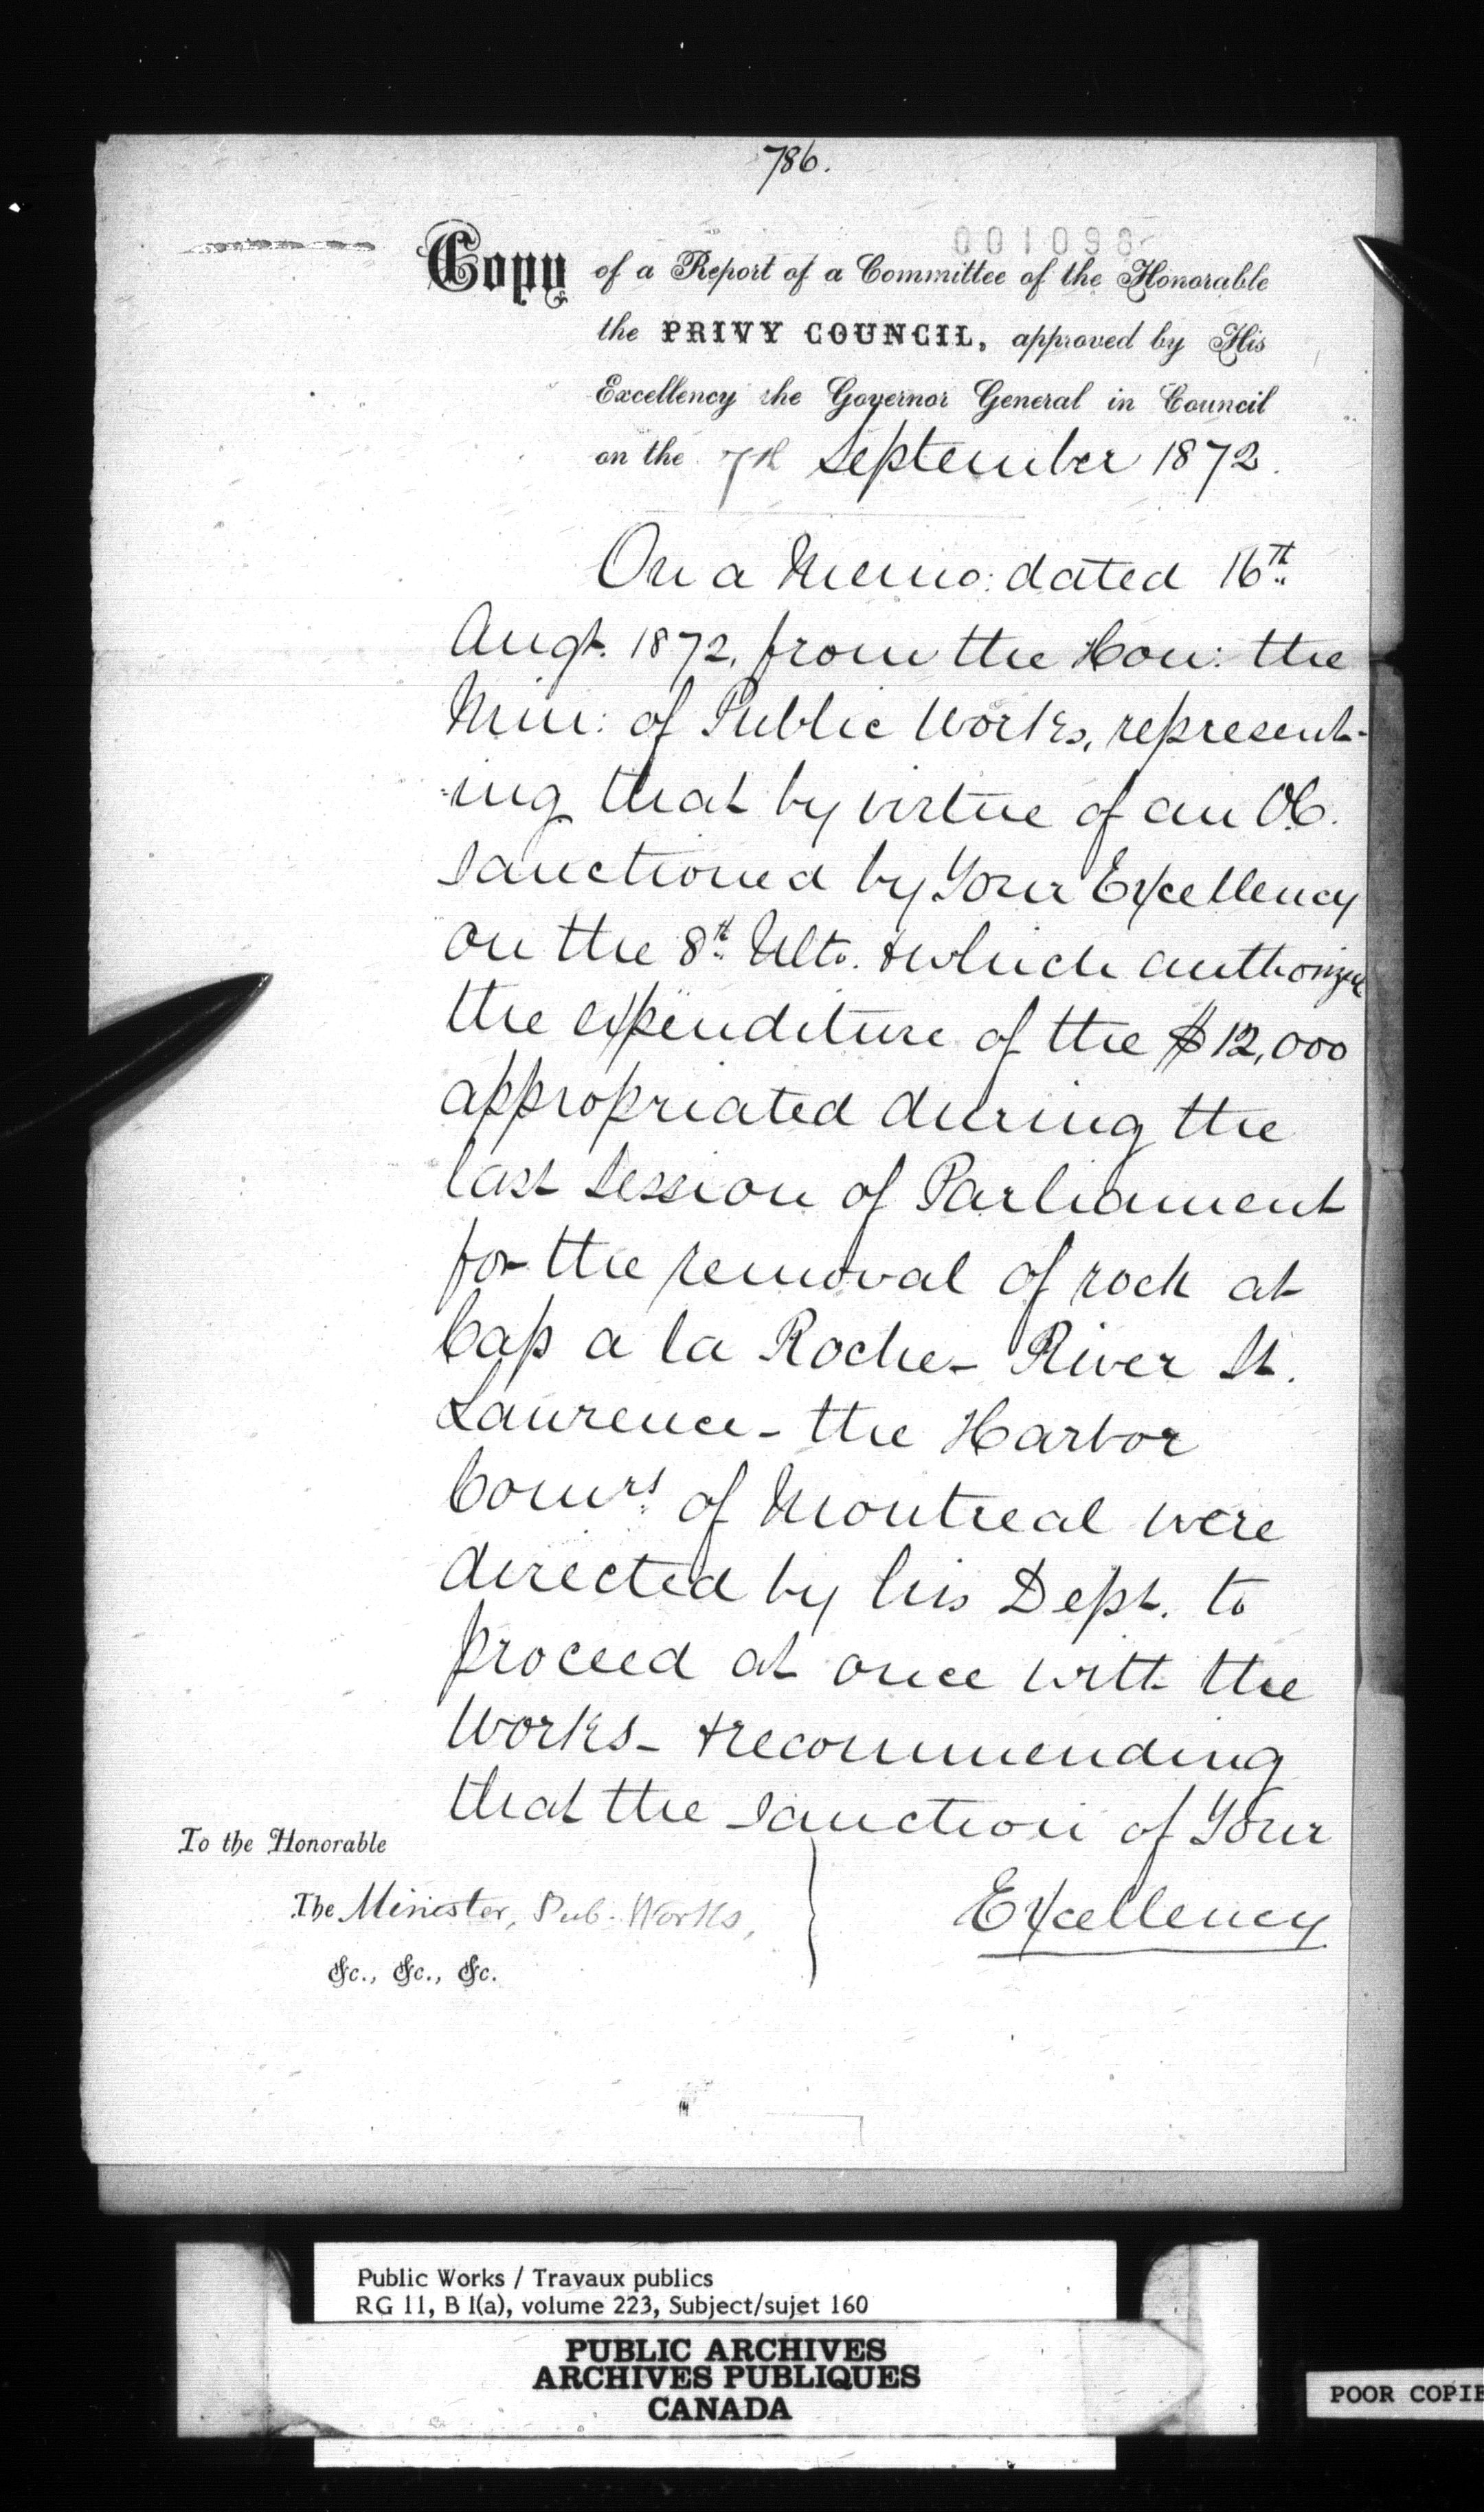 786.
001098
Copy of a Report of a Committee of the Honorable
the PRIVY COUNCIL, approved by His
Excellency the Governor General in Council
on the 7th September 1872.
On a Memo: dated 16th
Augt. 1872, from the Hon: the
Min: of Public Works, represent-
-ing that by virtue of an O.C.
sanctioned by Your Excellency
on the 8th Ulto. & which authorized
the expenditure of the $12,000
appropriated during the
last Session of Parliament
for the removal of rock at
Cap a la Roche - River St.
Laurence - the Harbor
Comrs. of Montreal were
directed by his Dept. to
proceed at once with the
Works - & recommending
that the sanction of Your
Excellency
To the Honorable
The Minister, Pub: Works,
&c., &c., &c.
Public Works / Travaux publics
RG 11, B 1(a), volume 223, Subject/sujet 160
PUBLIC ARCHIVES
ARCHIVES PUBLIQUES
CANADA
POOR COPIE